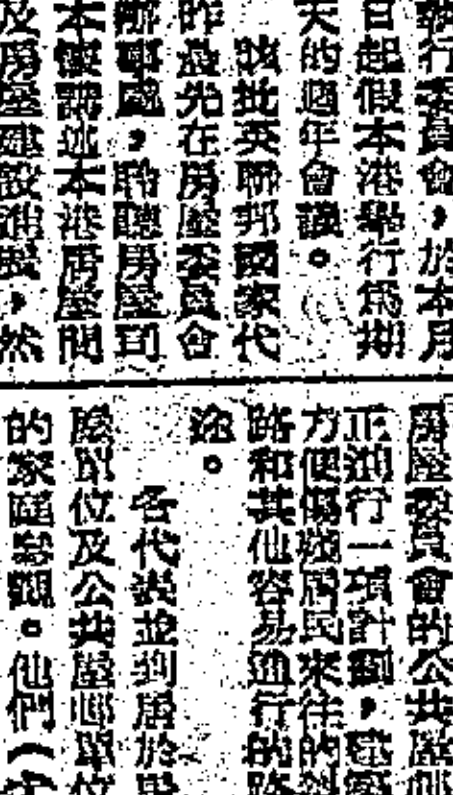 執行委員會，於本月
日起假本港舉行為期
天的週年會議。
該批英聯邦國家代
昨晨先在房屋委員會
辦事處，聆聽房屋司
本懷講述本港房屋問
及房屋建設進展，然
房屋委員會的公共屋邨
正進行一項計劃，建築
方便傷殘居民來往的斜
路和其他容易通行的路
途。
各代表並到居於
除單位及公共屋邨單位
的家庭參觀。他們（